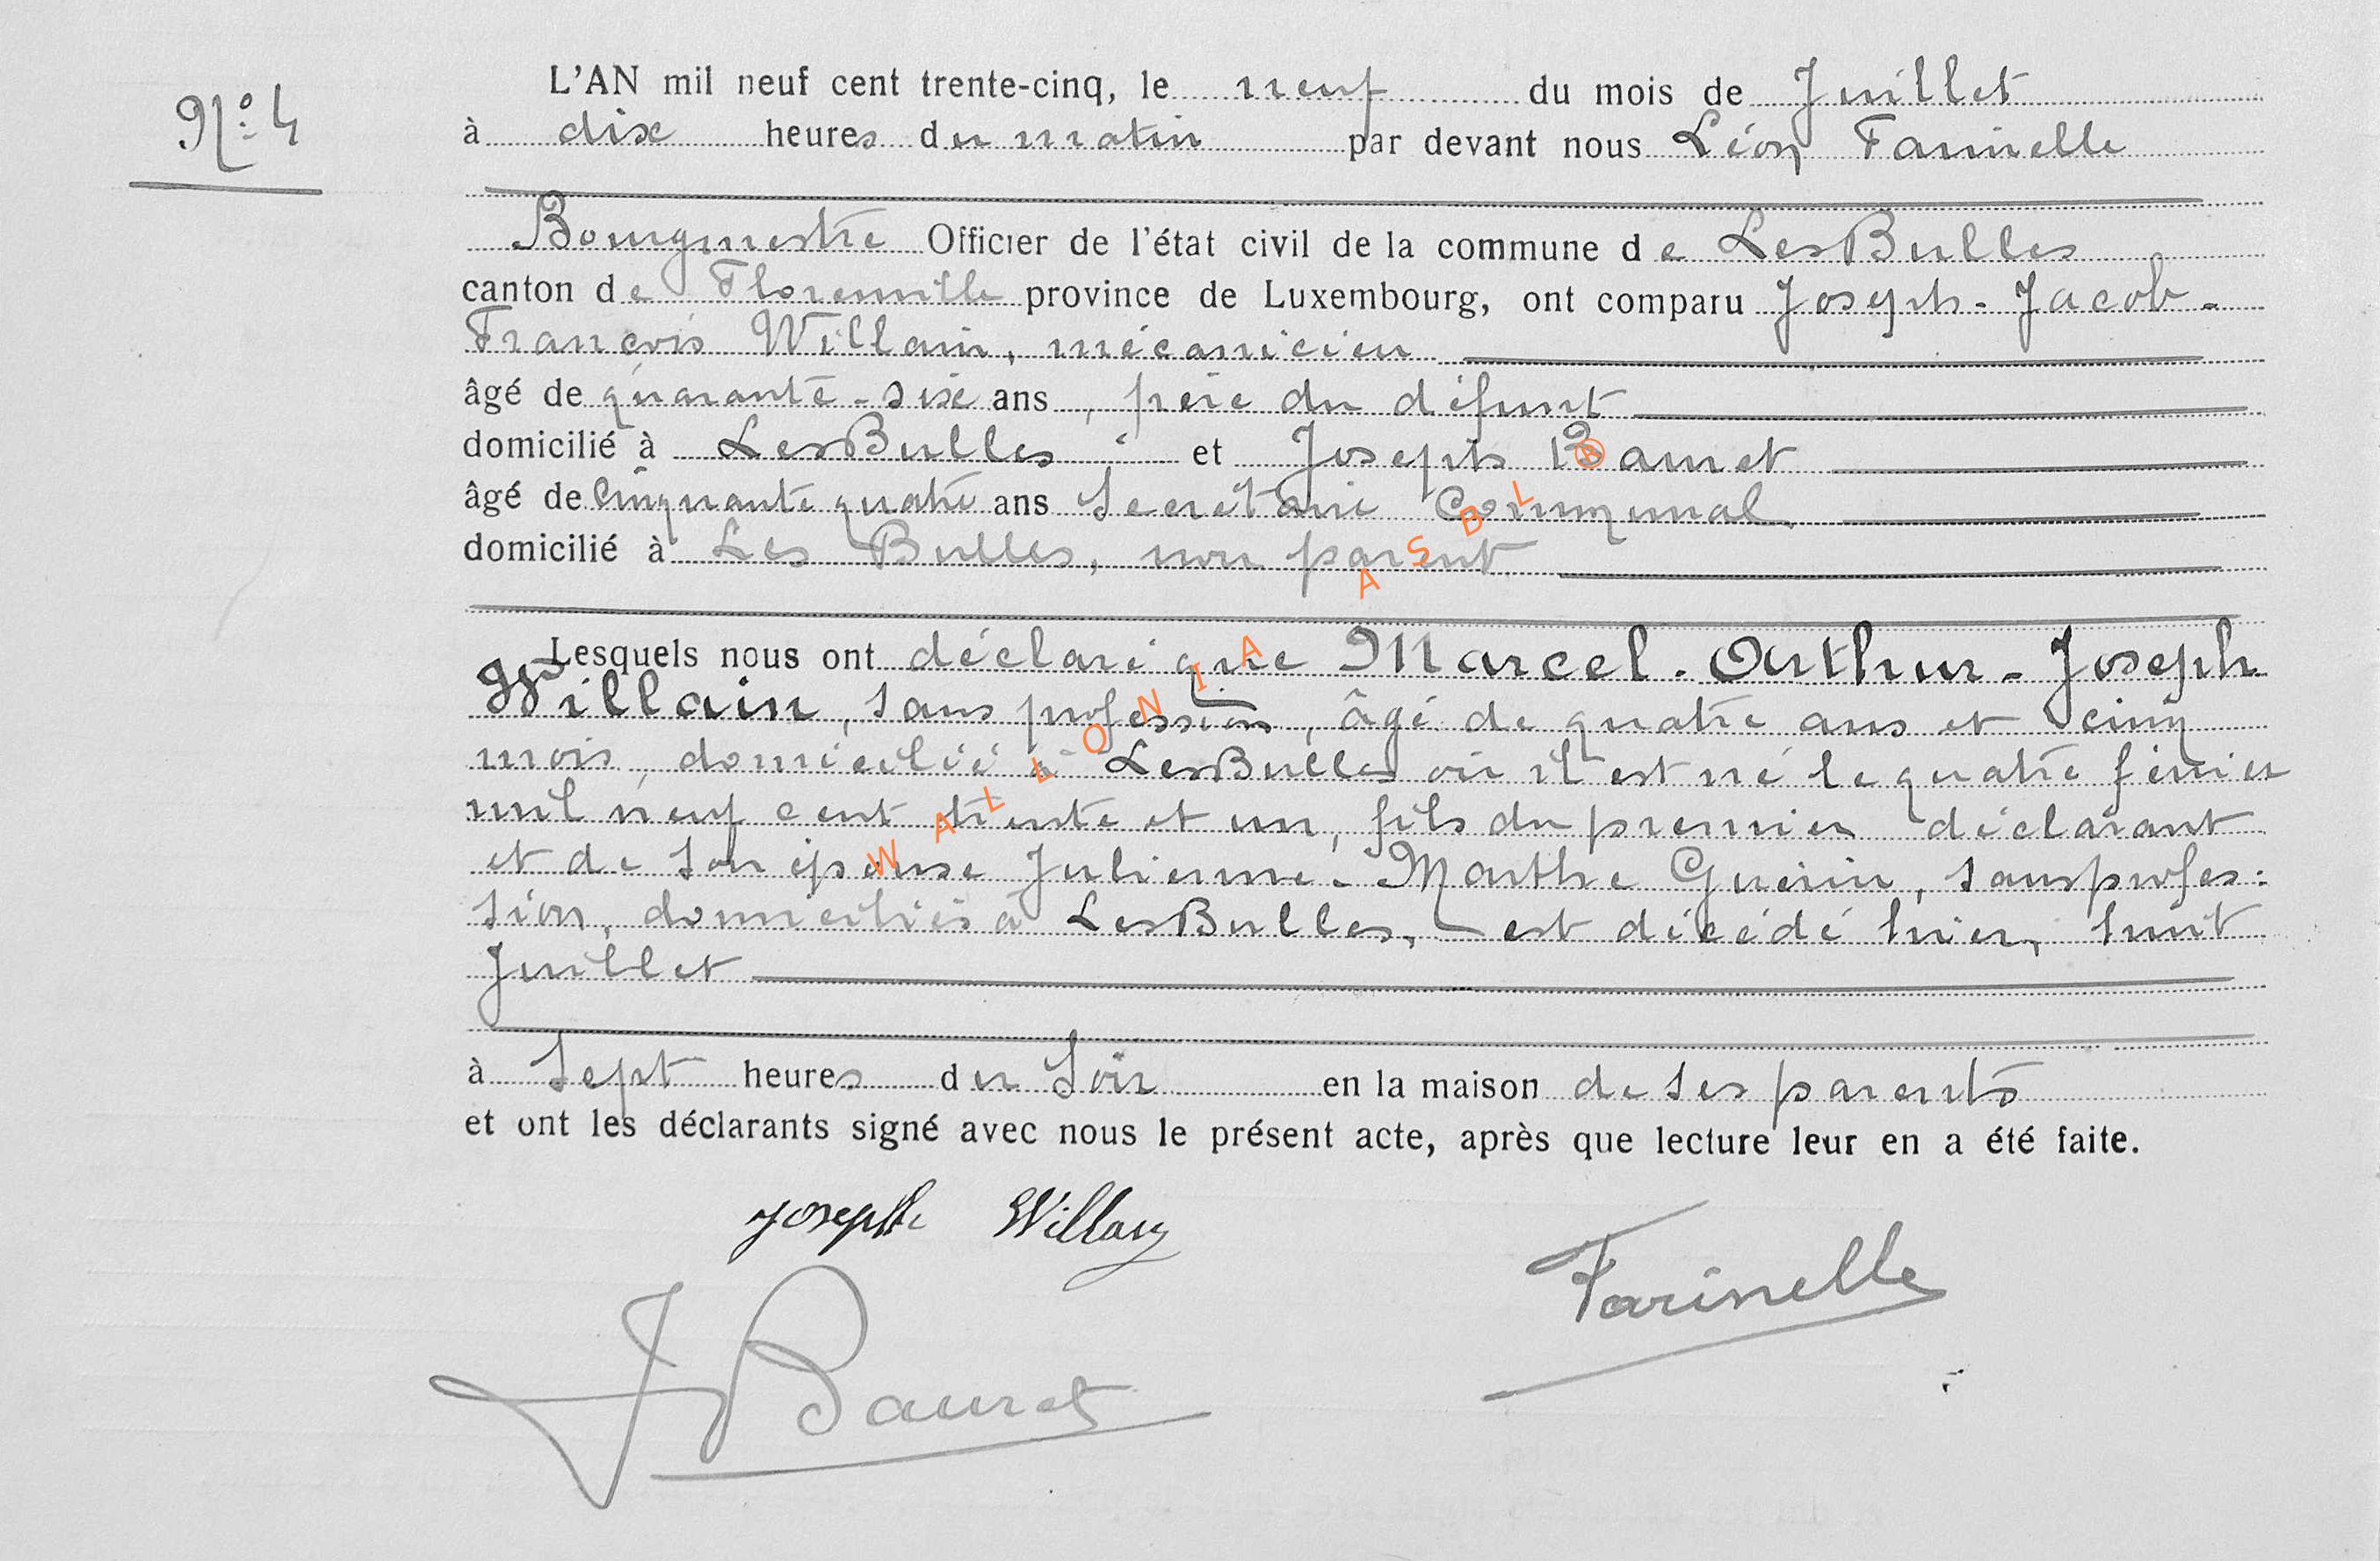 N°: 4
L'AN mil neuf cent trente-cinq, le neuf du mois de Juillet
à dix heures du matin par devant nous Léon Farinelle
Bourgmestre Officier de l'état civil de la commune de LesBulles
canton de Florenville province de Luxembourg, ont comparu Joseph-Jacob-
François Willain, mécanicien
âgé de quarante-six ans, père du défunt
domicilié à LesBulles ; et Joseph Bauret
âgé de Cinquante quatre ans Secrétaire Communal
domicilié à Les Bulles, non parent
Lesquels nous ont déclaré que Marcel-Arthur-Joseph
Willain, sans profession, âgé de quatre ans et cinq
mois, domicilié à LesBulles où il est né le quatre février
mil neuf cent trente et un, fils du premier déclarant
et de son épouse Julienne-Marthe Guérin, sans profes:
sion, domiciliés à LesBulles, est décédé hier, huit
Juillet
à Sept heures du Soir en la maison de ses parents
et ont les déclarants signé avec nous le présent acte, après que lecture leur en a été faite.
Joseph Willain
Farinelle
J Bauret
WALLONIA ASBL ©